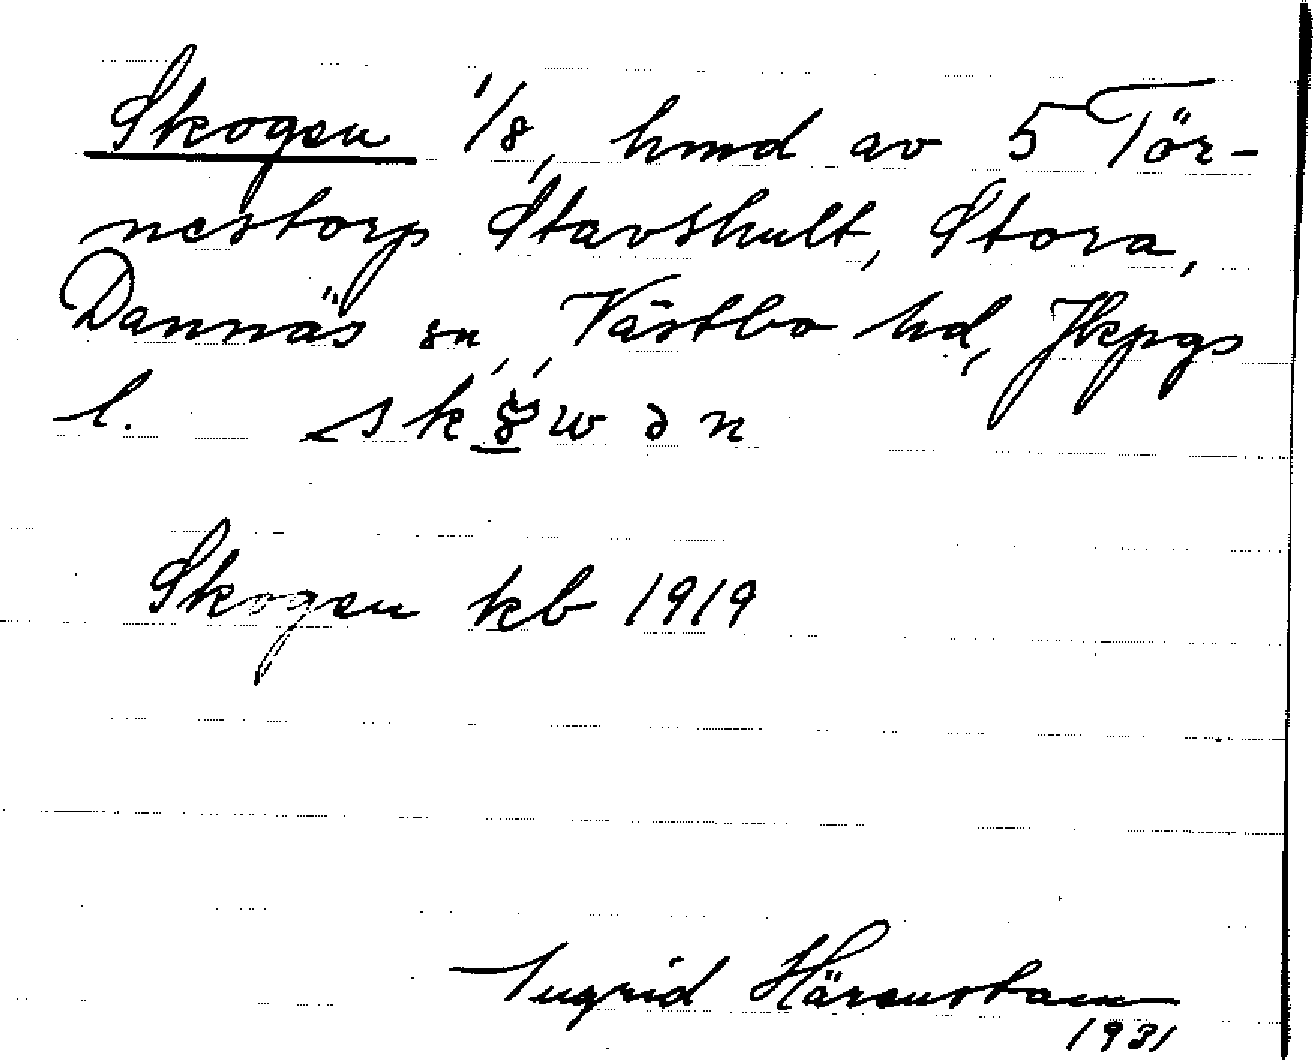 Skogen 1/8, hmd av 5 Tör-
nestorp Stavshult, Stora,
Dannäs sn, Västbo hd, Jkpgs
l. sk w ə n
Skogen kb 1919
Ingrid Härenstam
1931